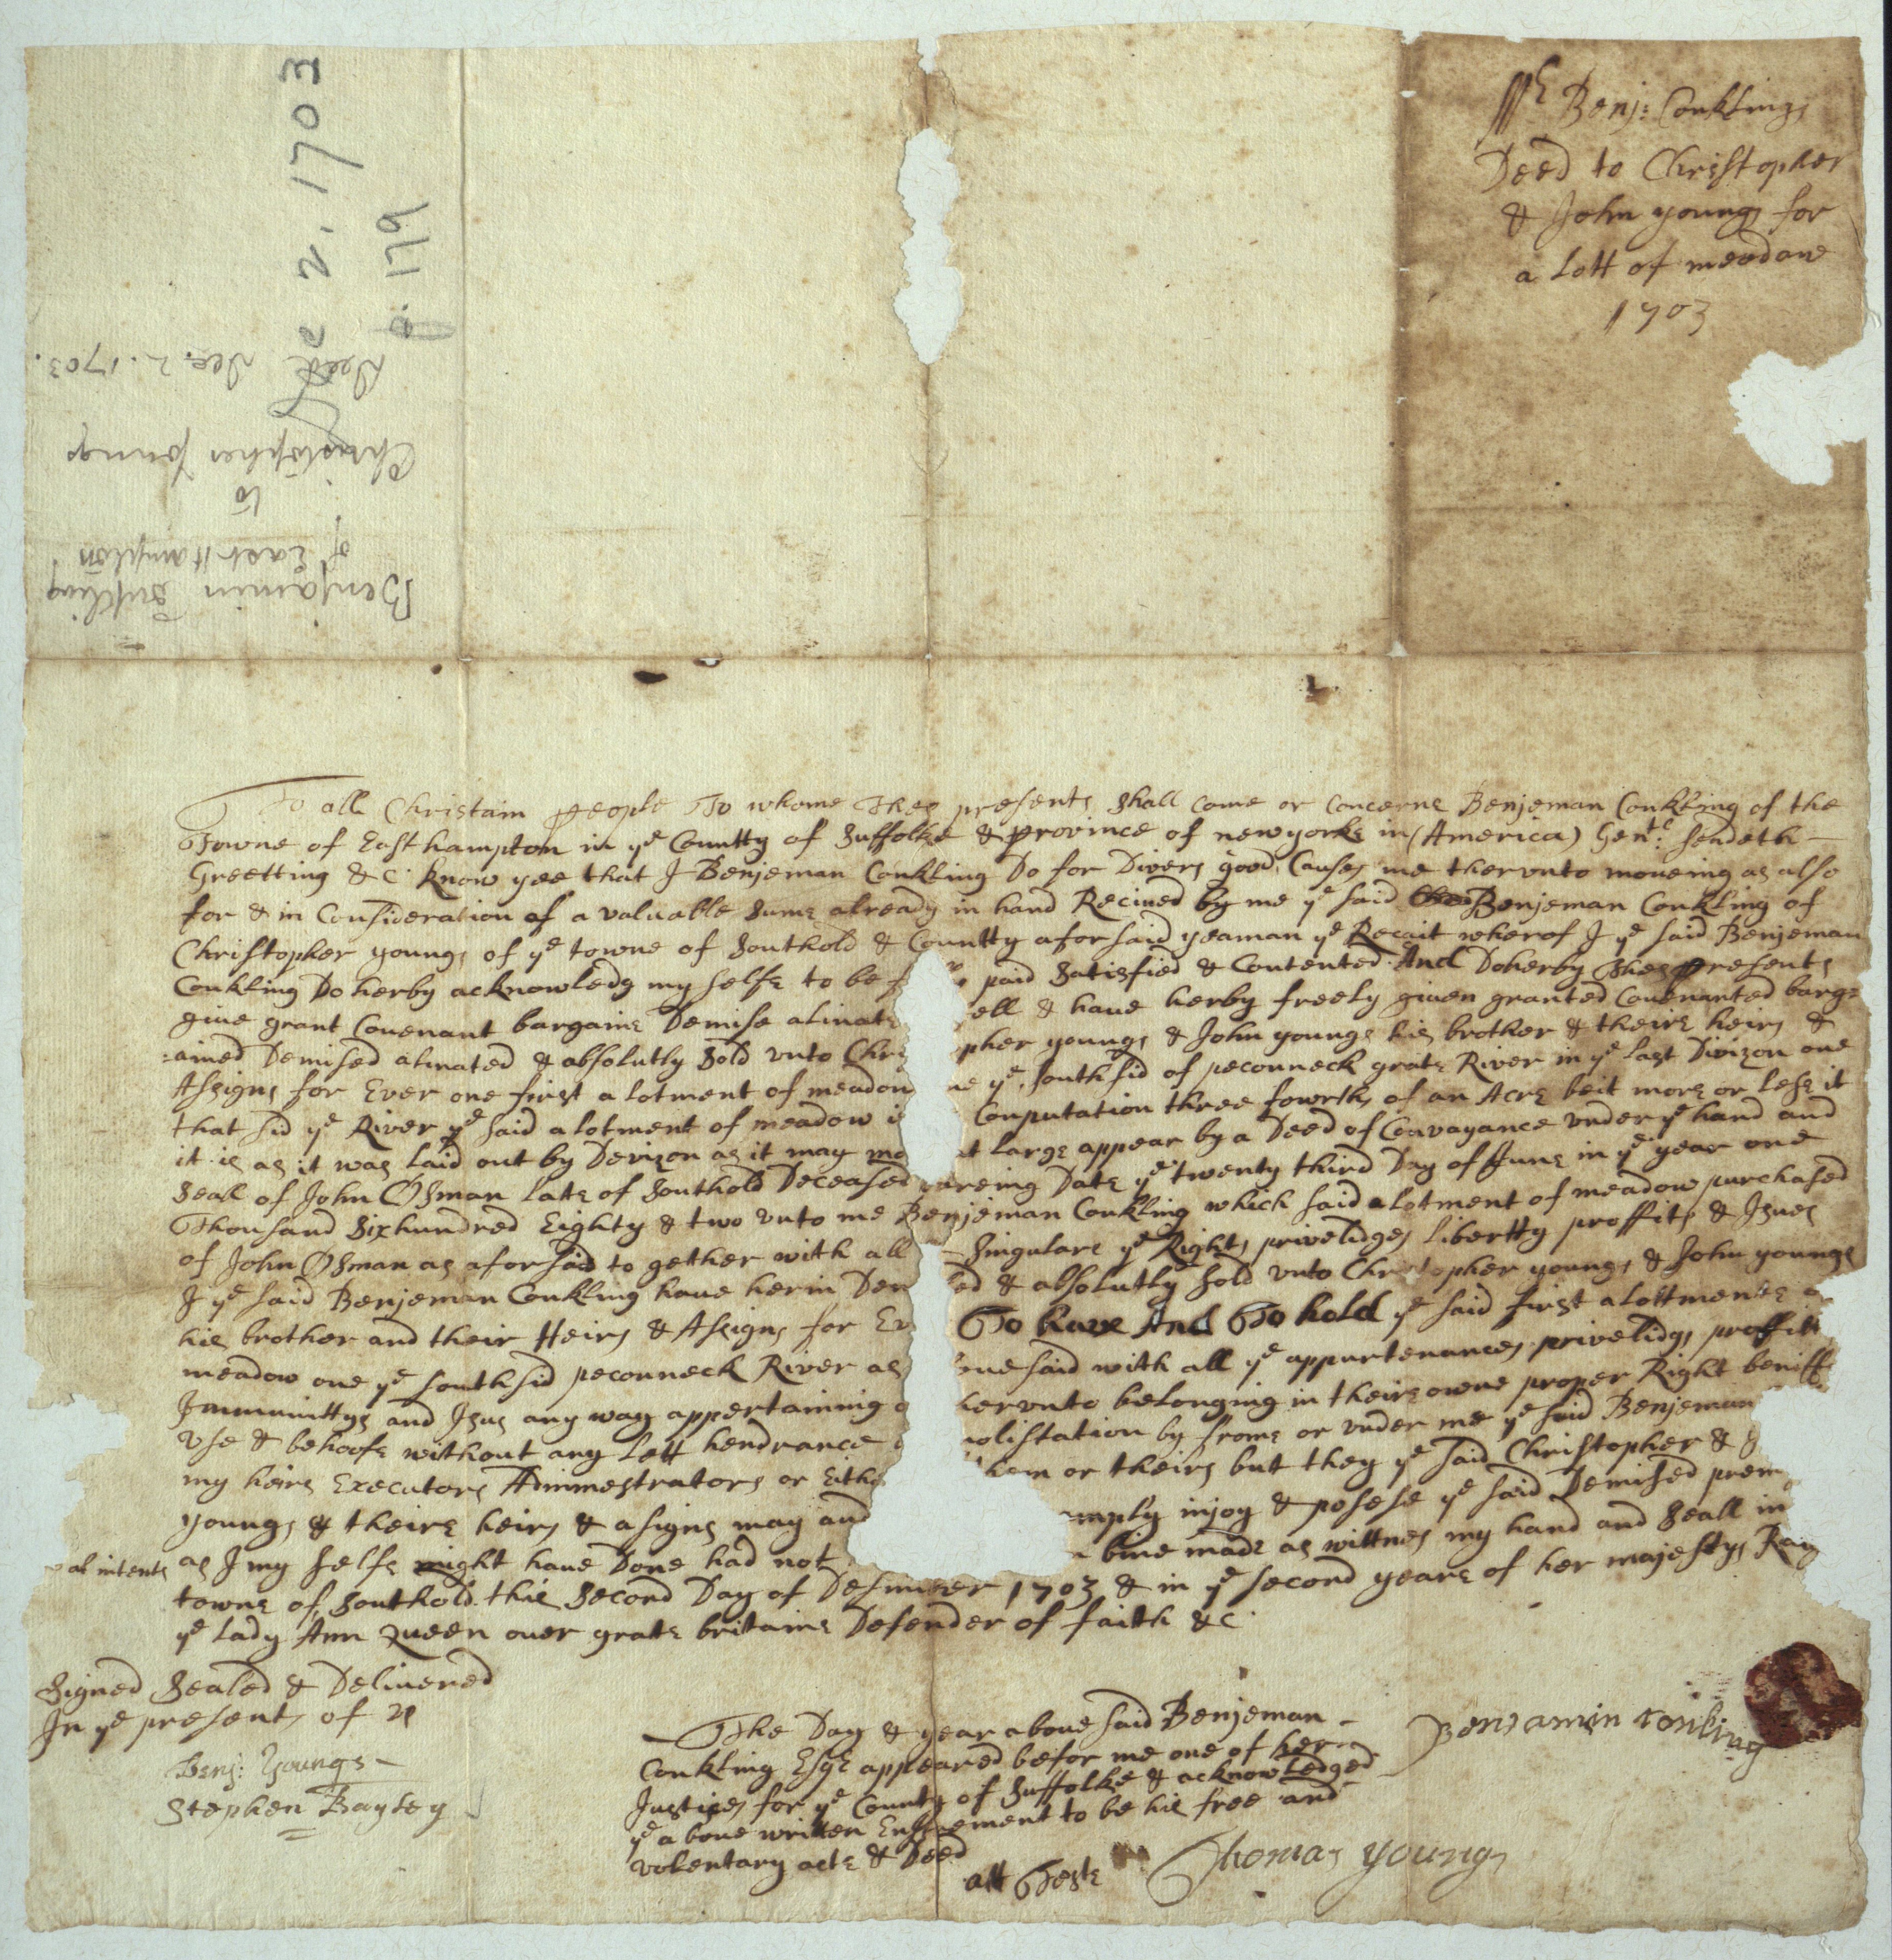 Benj: Conklings
Deed to Christopher
& John youngs for
a Lott of meadow
1703
2. 1703
p. 179
Deed Dec. 2. 1703.
Christopher Youngs
to
of East Hampton
Benjamin
To all Christain people To whome Thes presents shall come or concerne Benjeman Conkling of the
Towne of Easthampton in ye Countty of Suffolke & province of newyorke in (America) Gent: sendeth
Greetting &c: know yee that I Benjeman Conkling Do for Divers good Causes me thervnto moveing as also
for & in Consideration of a valuable sume already in hand Recived by me ye said Benjeman Conkling of
Christopher youngs of ye towne of Southold & Countty aforsaid yeaman ye Recait wherof I ye said Benjeman
Conkling Do herby acknowledg my selfe to be paid Satisfied & Contented And Doherby thes presents
give grant Covenant bargaine Demise alinate ell & have herby freely given granted Covenanted barg=
=ained Demised alinated & absolutly Sold vnto Chris pher youngs & John youngs his brother & theire heirs &
Assigns for Ever one first alotment of meadow ye southsid of peconneck grate River in ye last Divizon one
that sid ye River ye said alotment of meadow is Conputation three fowrths of an Acre beit more or lese it
it is as it was laid out by Devizon as it may mo at large appear by a Deed of Convayance vnder ye hand and
Seall of John Osman late of Southold Deceased areing Date ye twenty third Day of June in ye year one
Thousand Six hundred Eighty & two vnto me Benjeman Conkling which said alotment of meadow purchased
of John Osman as aforsaid to gether with all Singulare ye Rights privelidges libertty proffits & Isues
I ye said Benjeman Conkling have herin Dem ed & absolutly sold vnto Christopher youngs & John youngs
his brother and their Heirs & Assigns for Ev To have And To hold ye said first alottmente
meadow one ye southsid peconneck River as ovesaid with all ye appurtenances privelidgs proffits
Immunittys and Isus any way appertaining hervnto belonging in theire owne proper Right beniff
vse & behoofe without any lett hendrance molistation by frome or vnder me ye said Benjeman
my heirs Executors Adminnestrators or Eithe them or theirs but they ye said Christopher &
youngs & theire heirs & asigns may and injoy & posese ye said Demised prem
al intents as I my selfe might have Done had not bine made as wittnes my hand and Seall in
towne of Southold this Second Day of Desember 1703 & in ye second yeare of her majestys Raig
ye lady Ann Queen over grate britaine Defender of faith &c
Signed Sealed & Delivered
In ye presents of us
Benj: Youngs
Stephen Bayley
The Day & year above said Benjeman
Conkling Esqr appeared befor me one of her
Justices for ye County of Suffolke & acknowledged
ye above written Enstrement to be his free and
volentary acte & Deed
att Teste Thomas Youngs
Benjamin Conkling